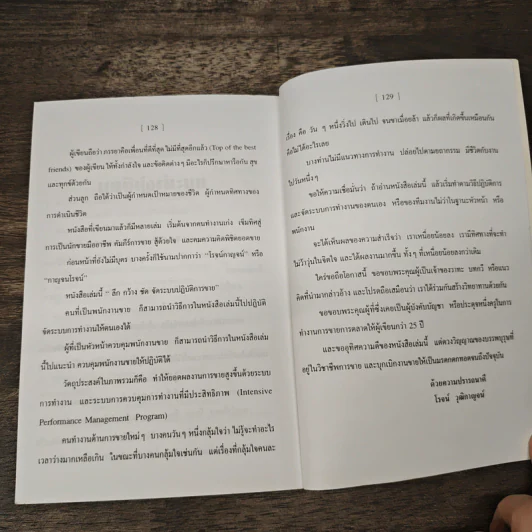 [ 128 ]
ผู้เขียนถือว่า ภรรยาคือเพื่อนที่ดีที่สุด ไม่มีที่สุดอีกแล้ว (Top of the best
friends) ของผู้เขียน ให้ทั้งกำลังใจ และข้อคิดต่างๆ มีอะไรก็ปรึกษาหารือกัน สุข
และทุกข์ด้วยกัน
ส่วนลูก ถือได้ว่าเป็นผู้กำหนดเป้าหมายของชีวิต ผู้กำหนดทิศทางของ
การดำเนินชีวิต
หนังสือที่เขียนมาแล้วก็มีหลายเล่ม เริ่มต้นจากคนทำงานเก่ง เข็มทิศสู่
การเป็นนักขายมืออาชีพ คัมภีร์การขาย สู้ด้วยใจ และคมความคิดพิชิตยอดขาย
ก่อนหน้าที่ยังไม่มีบุตร บางครั้งก็ใช้นามปากกาว่า "โรจน์กาญจน์" หรือ
"กาญจนโรจน์"
หนังสือเล่มนี้ " ลึก กว้าง ชัด จัดระบบปฏิบัติการขาย"
คนที่เป็นพนักงานขาย ก็สามารถนำวิธีการในหนังสือเล่มนี้ไปปฏิบัติ
จัดระบบการทำงานให้ตนเองได้
ผู้ที่เป็นหัวหน้าควบคุมพนักงานขาย ก็สามารถนำวิธีการในหนังสือเล่ม
นี้ไปแนะนำ ควบคุมพนักงานขายให้ปฏิบัติได้
วัตถุประสงค์ในภาพรวมก็คือ ทำให้ยอดผลงานการขายสูงขึ้นด้วยระบบ
การทำงาน และระบบการควบคุมการทำงานที่มีประสิทธิภาพ (Intensive
Performance Management Program)
คนทำงานด้านการขายใหม่ๆ บางคนวันๆ หนึ่งกลุ้มใจว่า ไม่รู้จะทำอะไร
เวลาว่างมากเหลือเกิน ในขณะที่บางคนกลุ้มใจเช่นกัน แต่เรื่องที่กลุ้มใจคนละ
[ 129 ]
เรื่อง คือ วัน ๆ หนึ่งวิ่งไป เดินไป จนขาเมื่อยล้า แล้วก็ผลที่เกิดขึ้นเหมือนกัน
คือไม่ได้อะไรเลย
บางท่านไม่มีแนวทางการทำงาน ปล่อยไปตามยถากรรม มีชีวิตกับงาน
ไปวันหนึ่งๆ
ขอให้ความเชื่อมั่นว่า ถ้าอ่านหนังสือเล่มนี้ แล้วเริ่มทำตามวิธีปฏิบัติการ
และจัดระบบการทำงานของตนเอง หรือของทีมงานไม่ว่าในฐานะหัวหน้า หรือ
พนักงาน
จะได้เห็นผลของความสำเร็จว่า เราเหนื่อยน้อยลง เรามีทิศทางที่จะทำ
ไม่ว้าวุ่นในจิตใจ และได้ผลงานมากขึ้น ทั้งๆ ที่เหนื่อยน้อยลงกว่าเดิม
ใคร่ขอถือโอกาสนี้ ขอขอบพระคุณผู้เป็นเจ้าของวาทะ บทกวี หรือแนว
คิดที่นำมากล่าวอ้าง และโปรดถือเสมือนว่า เราได้ร่วมกันสร้างวิทยาทานด้วยกัน
ขอขอบพระคุณผู้ที่ซึ่งเคยเป็นผู้บังคับบัญชา หรือประดุจหนึ่งครูในการ
ทำงานการขายการตลาดให้ผู้เขียนกว่า 25 ปี
และขออุทิศความดีของหนังสือเล่มนี้ แด่ดวงวิญญาณของบรรพบุรุษที่
อยู่ในวิชาชีพการขาย และบุกเบิกงานขายให้เป็นมรดกตกทอดจนถึงปัจจุบัน
ด้วยความปรารถนาดี
โรจน์ วุฒิกาญจน์